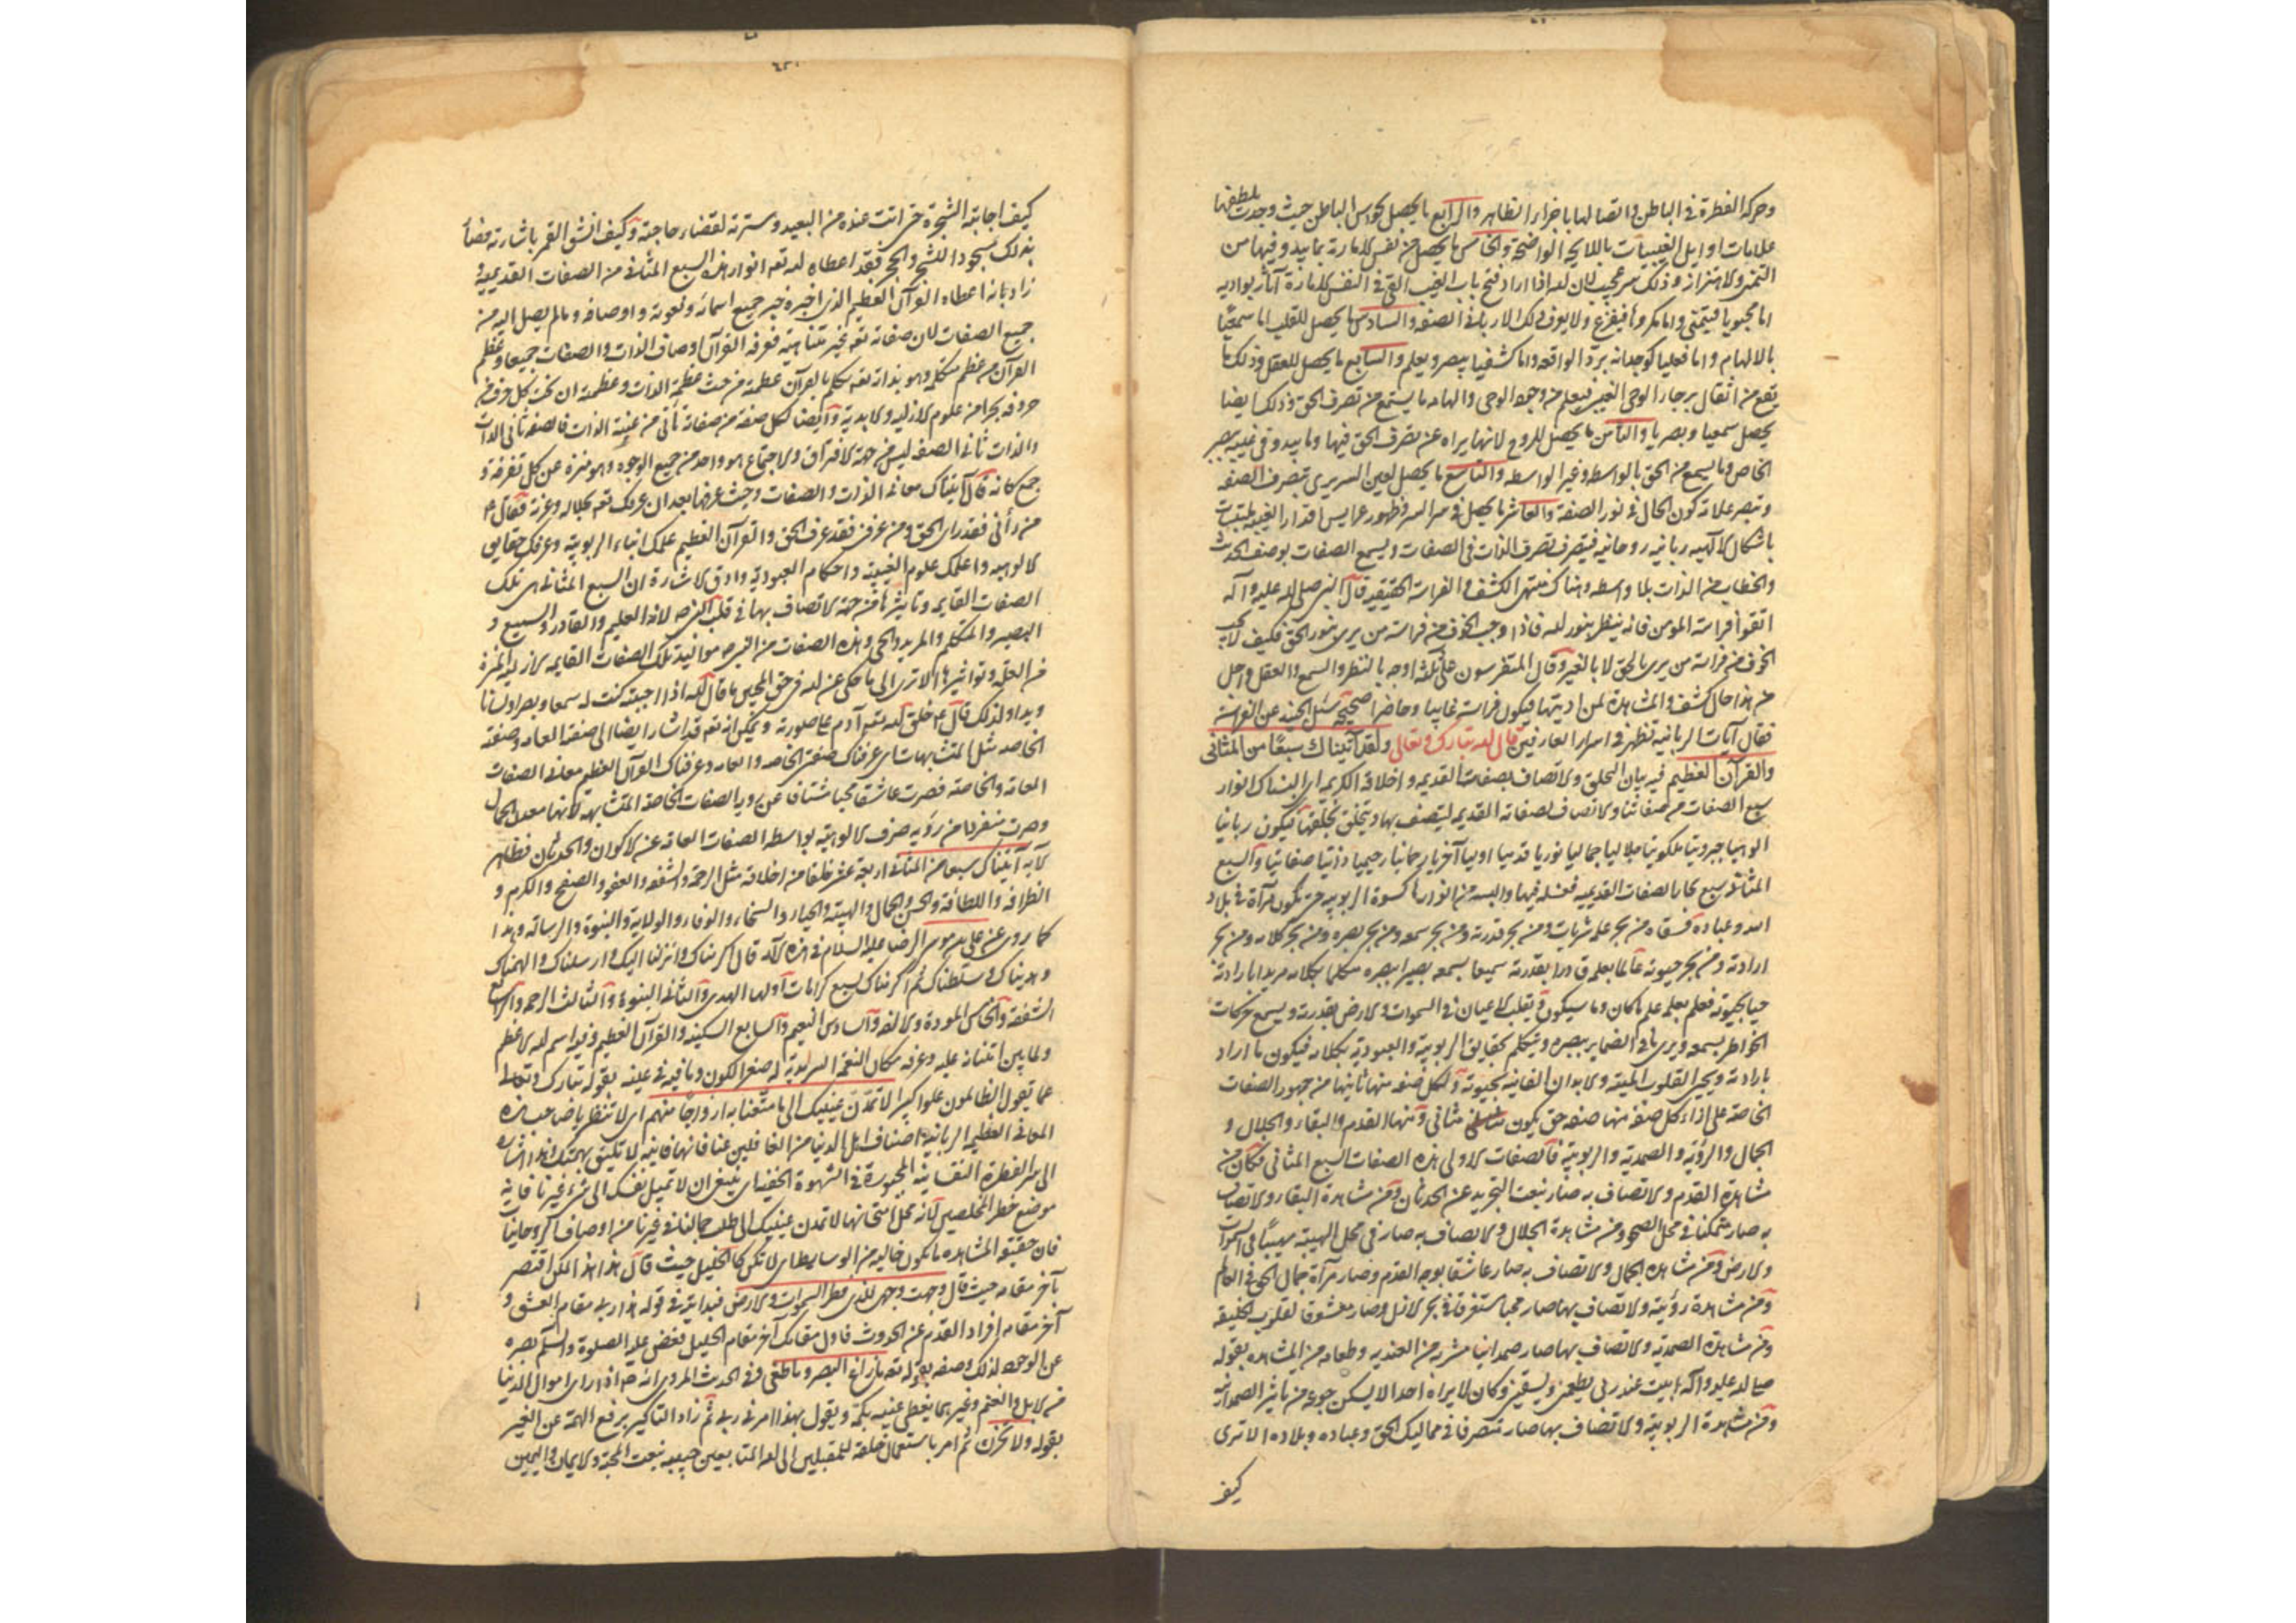 وحركة الفطرة في الباطن واتصالها باخرار الظاهر والرابع ما يحصل بحواس الباطن حيث وجدت بلطفها
علامات اوايل الغيبيات باللايحة الواضحة والخامس ما يحصل من نفس الامارة بما يبدو فيها من
التمنى والاهتزاز وذلك سر عجيب لان الله اذا اراد فتح باب الغيب القى في النفس الامارة آثار بواديه
اما محبوبا فيتمنى واما مكروها فيفزع ولا يعرف ذلك الا ربانى الصفة والسادس ما يحصل للقلب اما سمعيا
بالالهام واما فعليا كوجدانه برد الواقعة واما كشفيا يبصر ويعلم والسابع ما يحصل للعقل وذلك ما
يقع من اثقال برجاء الوحى الغيبى فيعلم من وجهه الوحى والهام ما يستمع من تصرف الحق وذلك ايضا
يحصل سمعيا وبصريا والثامن ما يحصل للروح لانها يراه عن تصرف الحق فيها وما يبدو في غيبه ببصر
الخاص وما يسمع من الحق بالواسطه وغير الواسطه والتاسع ما يحصل لعين السر يرى تصرف الصفه
وتبصر علامة كون الحال في نور الصفة والعاشر ما يحصل في سر السر فظهور عرايس اقدار الغيبيه ملتبسات
باشكال الآلهيه ربانيه روحانيه فيتصرف تصرف الذات في الصفات ويسمع الصفات بوصف الحديث
والخطاب من الذات بلا واسطه وهناك منتهى الكشف والفراسة الحقيقيه قال النبى صلى الله عليه وآله
اتقوا فراسة المومن فانه ينظر بنور الله فاذا وجب الخوف من فراسة من يرى بنور الحق فكيف لا يجب
الخوف من فراسة من يرى بالحق لا بالغير وقال المتفرسون على ثلثة اوجه بالنظر والسمع والعقل واجل
من هذا حال كشف والمشاهدة لمن اديتها فيكون فراسته غايبا وحاضرا صحيحة سئل الجنيد عن الفراسة
فقال آيات الربانية تظهر في اسرار العارفين قال الله تبارك وتعالى ولقد آتيناك سبعا من المثانى
والقرآن العظيم فيه بيان التخلق والاتصاف بصفات القديمه واخلاقه الكريمه اى البسناك انوار
سبع الصفات من صفاتنا والاتصاف لصفاته القديمه ليتصف بها ويتخلق بخلقها فيكون ربانيا
الوهيا جبروتيا ملكوتيا جلاليا جماليا نوريا قدسيا اوليا آخريا رحمانيا رحيميا ذاتيا صفاتيا والسبع
المثانى سبع بحار الصفات القديميه فغسله فيها والبسه من انوارها كسوة الربوبيه حتى تكون مرآة في بلاد
الله وعباده فسقاه من بحر علمه شربات ومن بحر قدرته ومن بحر سمعه ومن بحر بصره ومن بحر كلامه ومن بحر
ارادته ومن بحر حيوته عالما بعلمه قادرا بقدرته سميعا بسمعه بصيرا ببصره متكلما بكلامه مريدا بارادته
حيا بحيوته فعلم بعلمه علم ما كان وما سيكون ويقلب الاعيان في السموات والارض بقدرته ويسمع حركات
الخواطر بسمعه ويرى ما في الضماير ببصره ويتكلم بحقايق الربوبية والعبودية بكلامه فيكون ما اراد
بارادته ويحيى القلوب الميته والابدان الفانيه بحيوته ولكل صفه منها ثانيها من جمهور الصفات
الخاصة على ازاء كل صفة منها صفه حتى يكون مثانى ومنها القدم والبقاء والجلال و
الجمال والرؤية والصمدية والربوبية فالصفات الاولى هذه الصفات السبع المثانى فكان من
مشاهدة القدم والاتصاف به صار بنعت التجريد عن الحدثان ومن مشاهدة البقاء والاتصاف
به صار متمكنا في محل الصحو ومن مشاهدة الجلال والاتصاف به صار في محل الهيبة مهيبا في السموات
والارض ومن مشاهده الجمال والاتصاف به صار عاشقا بوجه القدم وصار مرآة جمال الحق في العالم
ومن مشاهدة رؤيته والاتصاف بها صار محبا مستغرقا في بحر الازل وصار معشوقا لقلوب الخليقه
ومن مشاهدة الصمدية والاتصاف بها صار صمدانيا مشربه من العنديه وطعامه من المشاهده بقوله
صلى الله عليه وآله ابيت عند ربى يطعمنى ويسقينى وكان لا يراه احد الا يسكن جوعه من تاثير الصمدانيه
ومن مشاهدة الربوبية والاتصاف بها صار متصرفا في مماليك الحق وعباده وبلاده الا ترى
كيف
كيف اجابته الشجرة حتى اتت عنده من البعيد وسترته لقضاء حاجته وكيف انشق القمر باشارته فضا
بذلك سجود الشجر والحجر فقد اعطاه الله تعه انوار هذه السبع المثانى من الصفات القديميه و
زاد بانه اعطاه القرآن العظيم الذى اخبره خبر جميع اسمائه ونعوته واوصافه وما لم يصل اليه من
جميع الصفات لان صفاته تعه غير متناهية فعرفه القرآن اوصاف الذات والصفات جميعا وعظم
القرآن من عظم متكلمه وهو بذاته تعه تكلم بالقرآن عظمه من حيث عظمة الذات وعظمته ان تحت كل حرف من
حروفه بحرا من علوم الازليه والابدية وايضا لكل صفة من صفاته ثانى من عينية الذات فالصفة ثانى الذات
والذات ثانى الصفه ليس من جهة الافتراق والاجتماع هو واحد من جميع الوجوه وهو منزه عن كل تفرقة و
جمع كانه قال آتيناك معانى الذات والصفات وحيث عرفها بعد ان عرفك تعه بجلاله وعزته فقال م
من رأنى فقد راى الحق ومن عرفنى فقد عرف الحق والقرآن العظيم علمك انباء الربوبية وعرفك حقايق
الالوهيه واعلمك علوم الغيبية واحكام العبودية وادق الاشارة ان السبع المثانى هى تلك
الصفات القايمه وتاثيرها من جهة الاتصاف بها في قلب النبى ص لانه العليم والقادر والسميع و
البصير والمتكلم والمريد والحى وهذه الصفات من النبى ص موانيد تلك الصفات القايمه الازليه المنزة
من الحلول وتواثيرها الا ترى الى ما حكى عن الله في حق المحبين ما قال الله اذا احببته كنت له سمعا وبصرا ولسانا
ويدا ولذلك قال ع م خلق الله تعه آدم على صورته ويمكن انه تعه قد اشار ايضا الى صفة العامه وصفة
الخاصه مثل المتشابهات اى عرفناك صفتى الخاصه والعامه وعرفناك القرآن العظيم معانى الصفات
العامة والخاصة فصرت عاشقا محبا مشتاقا عن رويه الصفات الخاصة المتشابهه لانها معدن الجمال
وصرت متفردا من رؤيه صرف الالوهية بواسطه الصفات العامه عن الاكوان والحدثان فظاهر
الآيه آتيناك سبعا من المثانى اربعة عشر خلقا من اخلاقه مثل الرحمة والشفقه والعفو والصفح والكرم و
الظرافه واللطافة والحسن والجمال والهيبة والحياء والسخاء والوفاء والولاية والنبوة والرسالة وهذا
كما روى عن على بن موسى الرضا عليه السلام في هذه الآيه قال اكرمناك وانزلنا اليك وارسلناك والهمناك
وهديناك وسلطناك ثم اكرمناك بسبع كرامات اولها الهدى والثانى النبوة والثالث الرحمه والرابع
الشفقه والخامس المودة والالفه والسادس النعيم والسابع السكينه والقرآن العظيم وفيه اسم الله الاعظم
ولما بين امتنانه عليه وعرفه مكان النعمة السرمدية له صغر الكون وما فيه في عينه بقوله تبارك وتعالى
عما يقول الظالمون علوا كبيرا لا تمدن عينيك الى ما متعنا به ازواجا منهم اى لا تنظر يا صاحب هذه
المعانى العظيمه الربانية اصناف اهل الدنيا من الغافلين عنا فانها فانيه لا تليق بهمتك هذا اشارة
الى سر الفطرة النفسانيه المجبورة في الشهوة الخفيه اى ينبغى ان لا تميل نفسك الى شئ غيرنا فانه
موضع خطر المخلصين كانه محل امتحانها لا تمدن عينيك الى طلب جمالنا في غيرنا من اوصاف الروحانيا
فان حقيقه المشاهده ما تكون خاليه من الوسايط اى لا تكن كالخليل حيث قال هذا هذا لكن اقتصر
بآخر مقامه حيث قال وجهت وجهى للذى فطر السموات والارض فبدايته في قوله هذا ربى مقام العشق و
آخر مقامه افراد القدم عن الحدوث فاول مقامك آخر مقام الخليل فغض عليه الصلوة والسلم بصره
عن الوجه لذلك وصفه بقوله تعه ما زاغ البصر وما طغى وفى الحديث المروى انه ص اذا راى اموال الدنيا
من الابل والغنم وغيرهما يغطى عينيه بكمه ويقول بهذا امرنى ربى ثم زاد التاكير برفع الهمة عن الغير
بقوله ولا تحزن ثم امر باستعمال خلقه للمقبلين الى الله المتابعين حبيبه بنعت المحبة والايمان واليمين